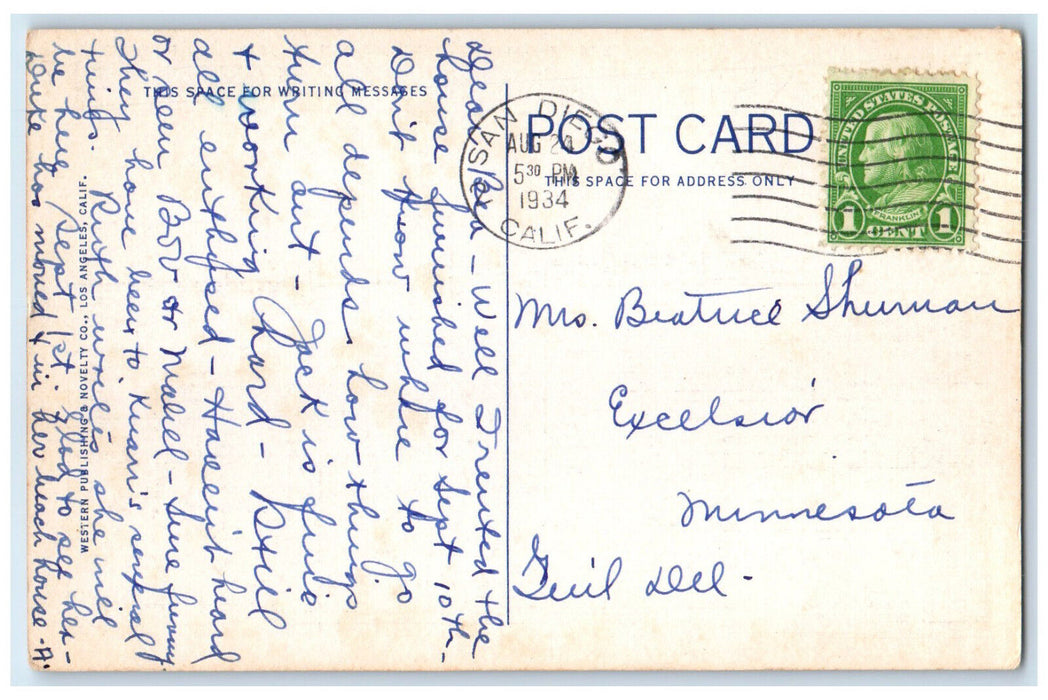 THIS SPACE FOR WRITING MESSAGES
POST CARD
THIS SPACE FOR ADDRESS ONLY
SAN DIEGO
AUG 24
5 30 PM
1934
CALIF.
UNITED STATES POSTAGE
FRANKLIN
1 CENT 1
Dear Bea - Well I rented the
house furnished for Sept 10th -
Don't know where to go
all depends how things
turn out - Jack is fine
+ working hard - Still
all enthused - Haven't heard
or seen Bob or Mabel - Sure funny
They have been to several
things. Ruth writes she will
be here Sept 1st. Glad to see her -
has moved in her beach house - A.
WESTERN PUBLISHING & NOVELTY CO., LOS ANGELES, CALIF.
Mrs. Beatrice Shuman
Excelsior
Minnesota
Del.